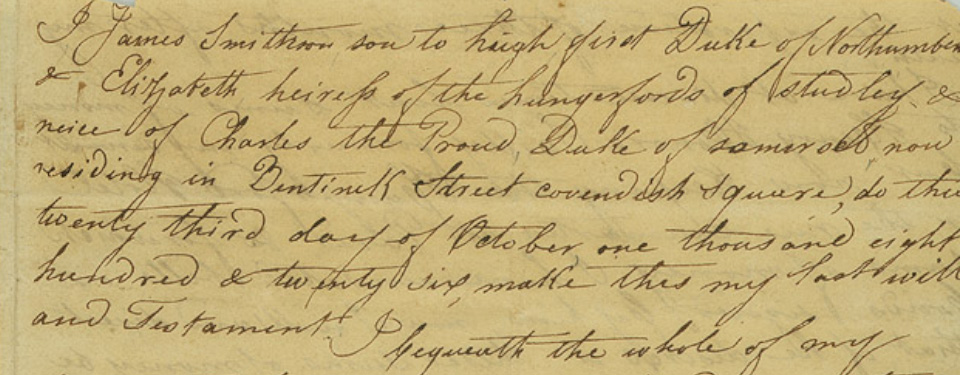 I James Smithson son to hugh first Duke of Northumber
& Elizabeth heiress of the hungerfords of studley &
neice of Charles the Proud, Duke of somerset now
residing in Bentinck Street covendish square, do this
twenty third day of October one thousand eight
hundred & twenty six, make this my last will
and Testament. I bequeath the whole of my